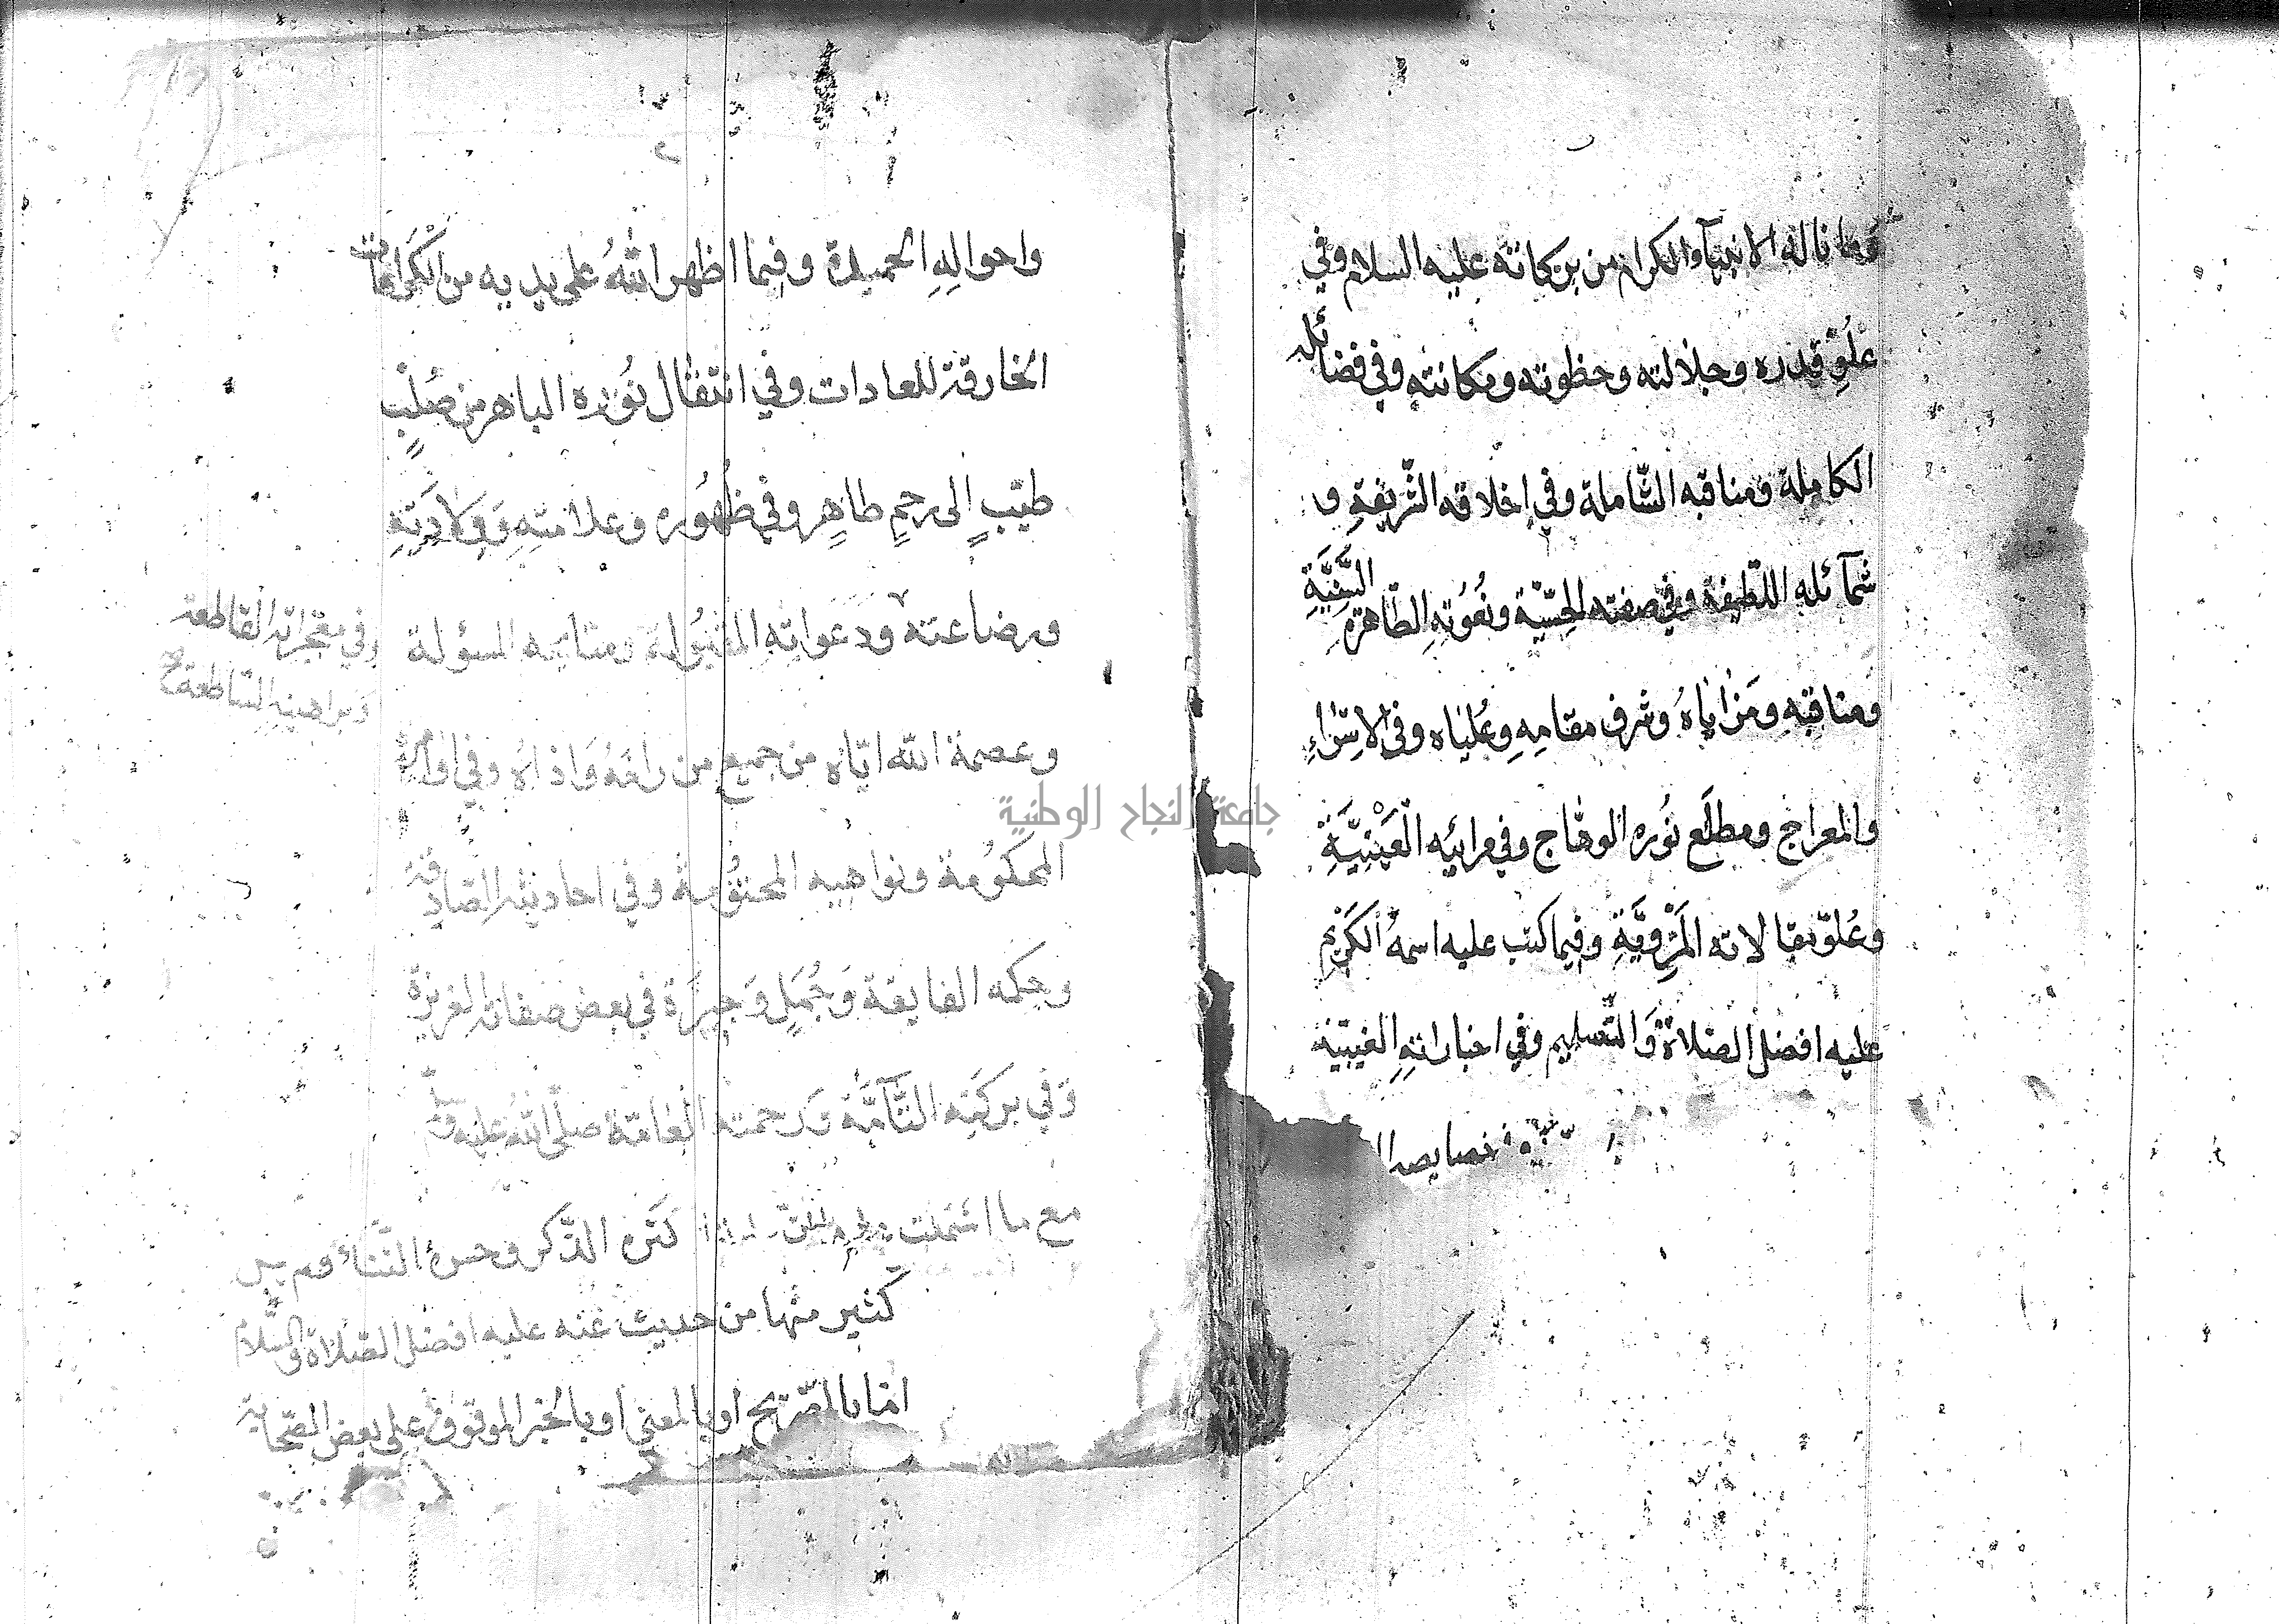 وما ناله الانبيآء الكرام من بركاته عليه السلام وفي
علُوِّ قدره وجلالته وحظوته ومكانته وفي فضائله
الكاملة ومناقبه الشّاملة وفي اخلاقه الشّريفةِ و
شمآئله اللّطيفة وفي صفته الحسّيّة ونعُوتهِ الطّاهرة السَّنِيَّةِ
ومناقبِهِ ومَزاياهُ وشرف مقامِهِ وعُلياه وفي الاِسْراءِ
والمعراج ومطلَع نُوره الوهّاج وفي مرائيه الْعَيْنِيَّةِ
وعُلوّ مقالاته المَرْوِيَّةِ وفيما كتب عليه اسمهُ الكَرِيْم
عليه افضل الصّلاة وَالتَّسليم وفي اخباراتهِ الغيبيّة
خصايصه
واحوالِهِ الجميلة وفيما اظهر اللهُ على يديه من الْكَرامات
الخارقة للعادات وفي انتقال نُوره الباهر من صُلْبٍ
طيّبٍ الى رحمٍ طاهِرٍ وفي ظُهُوره وعلامتِهِ وَوِلادَتِهِ
ورضاعته ودعواتهِ المقبُولة المسؤلة
وفي معجزاته القاطعة
وبراهينه السّاطعة صح
وعصمة الله ايّاه من جميع من رامَهُ وَاذاهُ وفي اوامره
المحكوُمة ونواهيه المحتوُمة وفي احاديثه الصّادقة
وحِكمه الفايقة وَجُمَلٍ وَجيزَة في بعض صفاته العزيزة
وَفي بركته التَّآمَّة وَرحمته العامّة صلى اللهُ عليه وسلّم
مع ما اشتملت عليه من كثرة الذّكر وحسن الثّناء
كثير منها من حديث عنه عليه افضل الصّلاة والسّلام
امّا بالتّصريح او بالمعنى او بالخبر الموقوف على بعض الصّحابة
جامعة النجاح الوطنية